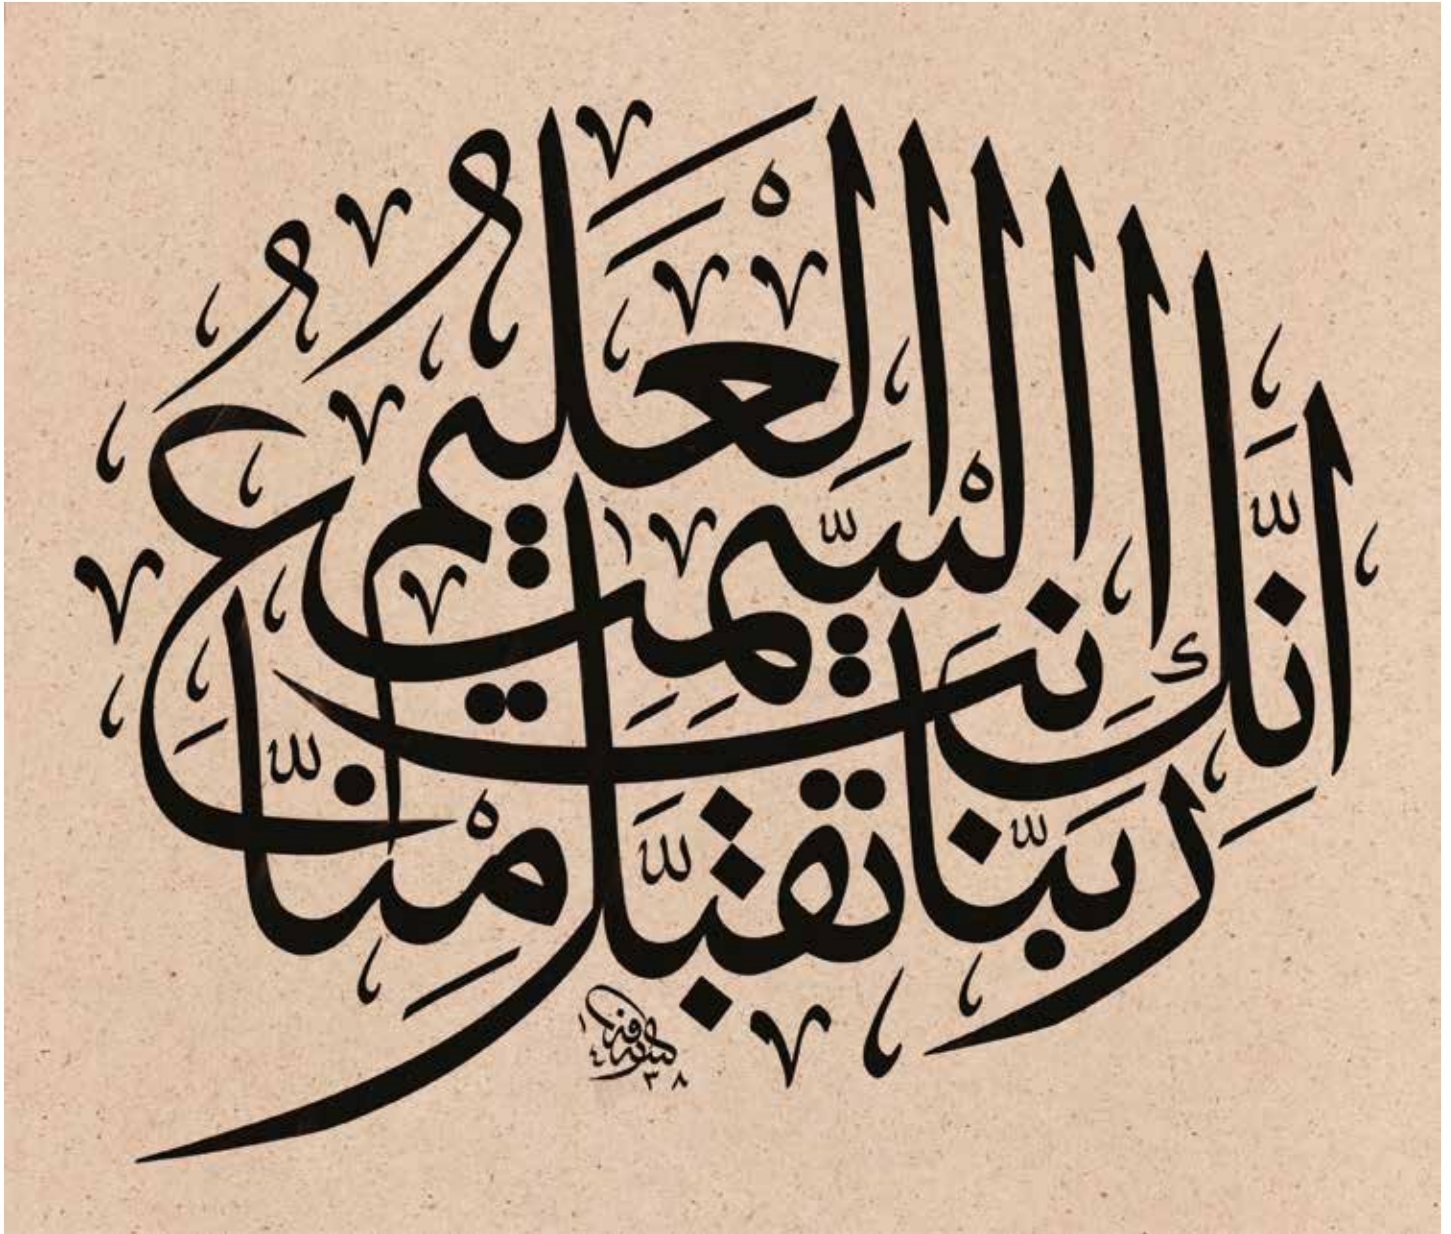 رَبَّنَا تَقَبَّلْ مِنَّا
إِنَّكَ أَنْتَ السَّمِيعُ الْعَلِيمُ
١٤٣٨